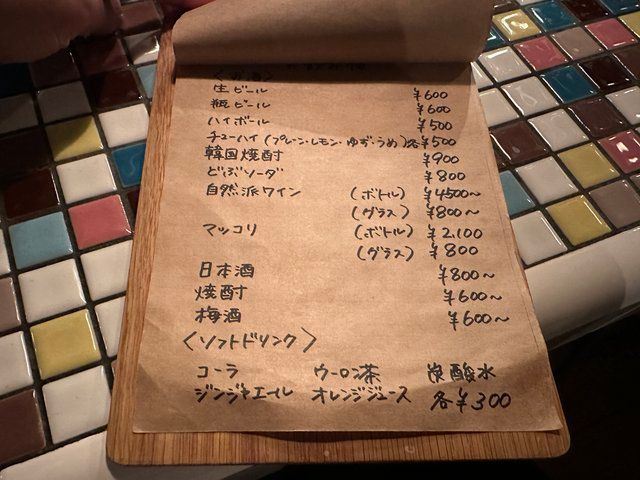 〈お酒〉
生ビール ¥600
瓶ビール ¥600
ハイボール ¥500
チューハイ(プレーン・レモン・ゆず・うめ)各¥500
韓国焼酎 ¥900
どぶソーダ ¥800
自然派ワイン (ボトル) ¥4500〜
(グラス) ¥800〜
マッコリ (ボトル) ¥2,100
(グラス) ¥800
日本酒 ¥800〜
焼酎 ¥600〜
梅酒 ¥600〜
〈ソフトドリンク〉
コーラ ウーロン茶 炭酸水
ジンジャエール オレンジジュース 各¥300